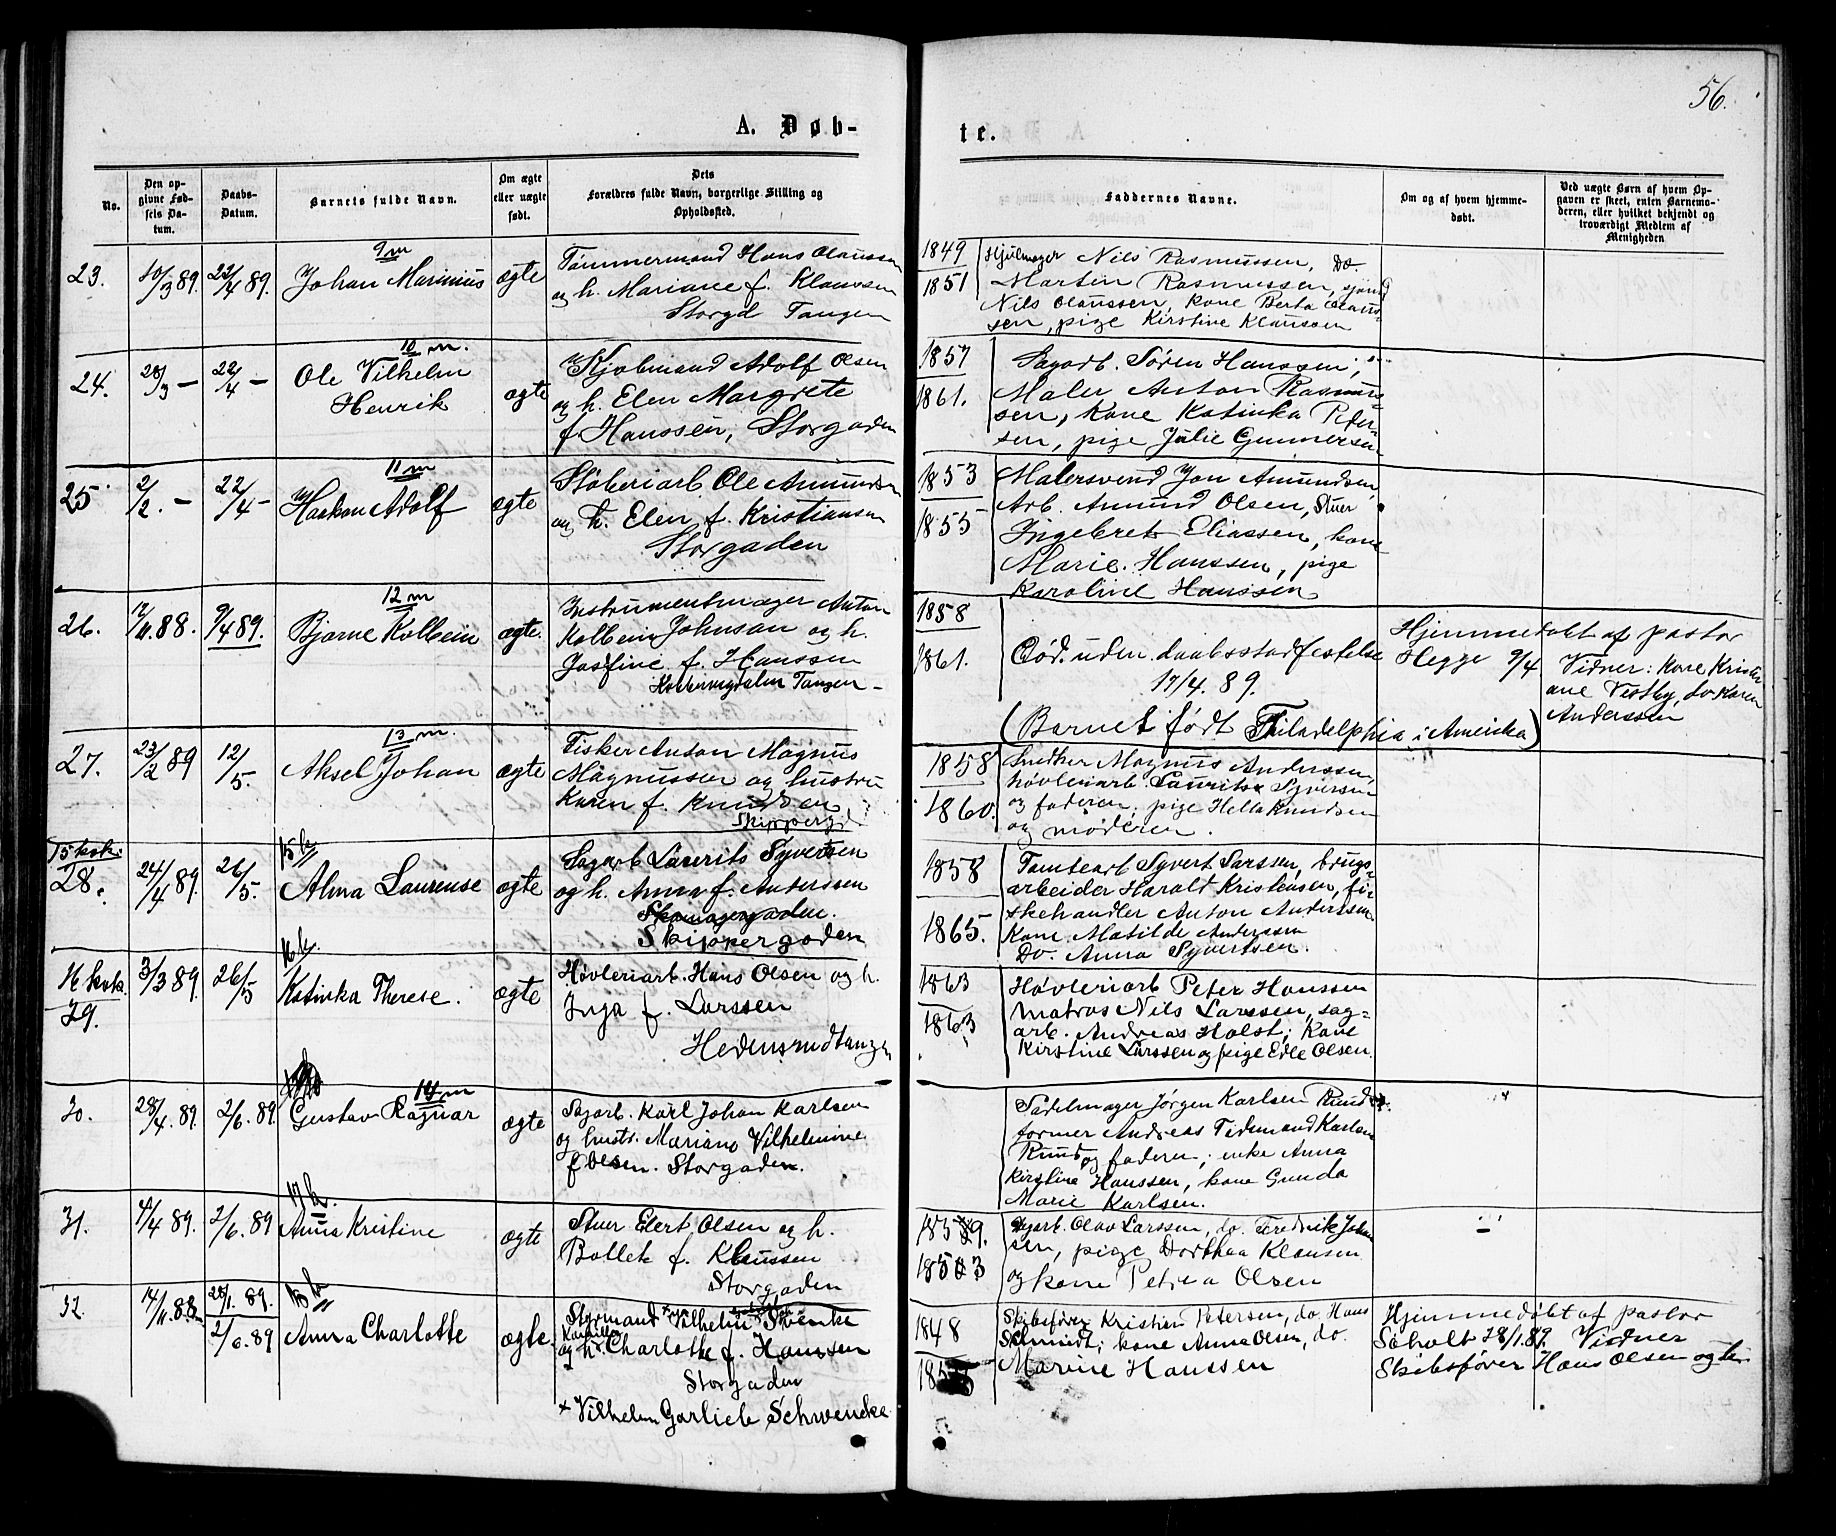 56.
A. Døb-
te.
No.
Den op-
givne Fød-
sels Da-
tum.
Daabs-
Datum.
Barnets fulde Navn.
Om ægte
eller uægte
født.
Dets
Forældres fulde Navn, borgerlige Stilling og
Opholdssted.
Faddernes Navne.
Om og af hvem hjemme-
døbt.
Ved uægte Børn af hvem Op-
gaven er skeet, enten Barnemo-
deren, eller hvilket bekjendt og
troværdigt Medlem af
Menigheden
23.
10/3 89.
22/4 89.
9 m
Johan Marinius
ægte
Tømmermand Hans Olaussen
og h. Mariane f. Klaussen
Storgd Tangen
1849
1851
Hjulmager Nils Rasmussen, Do.
Martin Rasmussen,
Nils Olaussen, kone Berta Olaus-
sen, pige Kirstine Klaussen
24.
28/3 —
22/4 —
10 m.
Ole Vilhelm
Henrik
ægte
Kjøbmand Adolf Olsen
og h. Elen Margrete
f. Hanssen, Storgaden
1857
1861.
Sagarb. Søren Hanssen,
Maler Anton Rasmus-
sen, kone Katinka Peter-
sen, pige Julie Gunnersen
25
2/2. —
22/4 —
11 m
Haakon Adolf
ægte
Støberiarb Ole Amundsen
og h. Elen f. Kristiansen
Storgaden
1853
1855
Malersvend Jon Amundsen,
Arb. Amund Olsen, Stuer
Ingebret Eliassen, kone
Marie Hanssen, pige
Karoline Hanssen
26.
12/11 88.
9/4 89.
12 m
Bjarne Kolbein
ægte.
Instrumentmager Anton
Kolbein Johnsan og h.
Josfine f. Hanssen
Tangen
1858
1861.
Død. uden daabsstadfestelse
17/4. 89.
(Barnet født Philadelphia i Amerika)
Hjemmedøbt af pastor
Hegge 9/4
Vidner: kone Kristi-
ane Vestby, do Karen
Anderssen
27.
23/2 89
12/5.
13 m.
Aksel Johan
ægte
Fisker Anton Magnus
Magnussen og hustru
Karen f. Knudsen
Skippergd.
1858
1860.
Snedker Magnus Anderssen,
høvleriarb. Laurits Syversen
og faderen, pige Hella Knudsen
og moderen.
15 kvk.
28.
24/4 89.
26/5.
15 k
Alma Laurense
ægte
Sagarb Laurits Syvertsen
og h. Anna f. Anderssen
Skomagergaden.
Skippergaden
1858
1865.
Tomtearb Syvert Larssen, brugs-
arbeider Harald Kristensen, fi-
skehandler Anton Anderssen
Kone Matilde Anderssen
Do. Anna Syvertsen.
16 kvk.
29.
3/3 89.
26/5
16 k.
Katinka Therese.
ægte
Høvleriarb. Hans Olsen og h.
Inga f. Larssen
Hedensrudtangen
1863
1863
Høvleriarb Peter Hanssen
matros Nils Larssen, sag-
arb. Andreas Holst; kone
Kirstine Larssen og pige Edle Olsen.
30.
28/4. 89.
2/6. 89.
14 m
Gustav Ragnar
ægte
Sagarb. Karl Johan Karlsen
og hustr. Mariane Vilhelmine
f Olsen. Storgaden.
Sadelmager Jørgen Karlsen Rund
former Andreas Tidemand Karlsen
Rund og faderen; enke Anna
Kirstine Hanssen, kone Gunda
Marie Karlsen.
31.
4/4 89.
2/6. 89
17 k.
Anna Kristine
ægte
Stuer Elert Olsen og h.
Bollet f. Klaussen
Storgaden
Sagarb. Olav Larssen, do. Fredrik John-
sen, pige Dorthea Klausen
og kone Petrea Olsen
32.
14/11 88.
28/1. 89.
2/6. 89
18 k
Anna Charlotte
ægte.
Styrmand Vilhelm Svenke
og h. Charlotte f. Hanssen
Storgaden
+ Vilhelm Garlieb Schwencke
1848
Skibsfører Kristian Petersen, do. Hans
Schmidt; kone Anna Olsen, do.
Marine Hanssen
Hjemmedøbt af pastor
Søholt 28/1.89. Vidner
Skibsfører Hans Olsen og